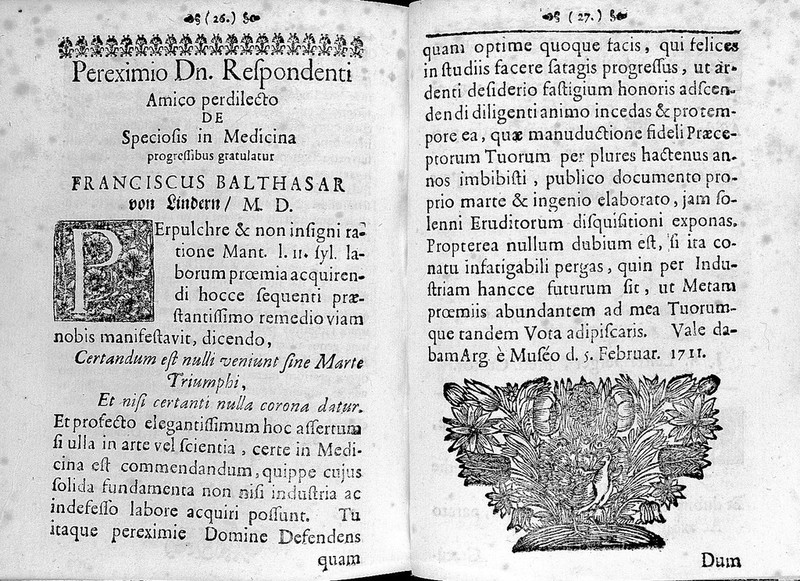 (26.)
Pereximio Dn. Reſpondenti
Amico perdilecto
DE
Specioſis in Medicina
progreſſibus gratulatur
FRANCISCUS BALTHASAR
von Lindern / M. D.
PErpulchre & non inſigni ra-
tione Mant. l. 11. ſyl. la-
borum prœmia acquiren-
di hocce ſequenti præ-
ſtantiſſimo remedio viam
nobis manifeſtavit, dicendo,
Certandum eſt nulli veniunt ſine Marte
Triumphi,
Et niſi certanti nulla corona datur.
Et profecto elegantiſſimum hoc aſſertum
ſi ulla in arte vel ſcientia, certe in Medi-
cina eſt commendandum, quippe cujus
ſolida fundamenta non niſi induſtria ac
indefeſſo labore acquiri poſſunt. Tu
itaque pereximie Domine Defendens
quam
(27.)
quam optime quoque facis, qui felices
in ſtudiis facere ſatagis progreſſus, ut ar-
denti deſiderio faſtigium honoris adſcen-
dendi diligenti animo incedas & protem-
pore ea, quæ manuductione fideli Præce-
ptorum Tuorum per plures hactenus an-
nos imbibiſti, publico documento pro-
prio marte & ingenio elaborato, jam ſo-
lenni Eruditorum diſquiſitioni exponas.
Propterea nullum dubium eſt, ſi ita co-
natu infatigabili pergas, quin per Indu-
ſtriam hancce futurum ſit, ut Metam
prœmiis abundantem ad mea Tuorum-
que tandem Vota adipiſcaris. Vale da-
bam Arg. è Muſéo d. 5. Februar. 1711.
Dum